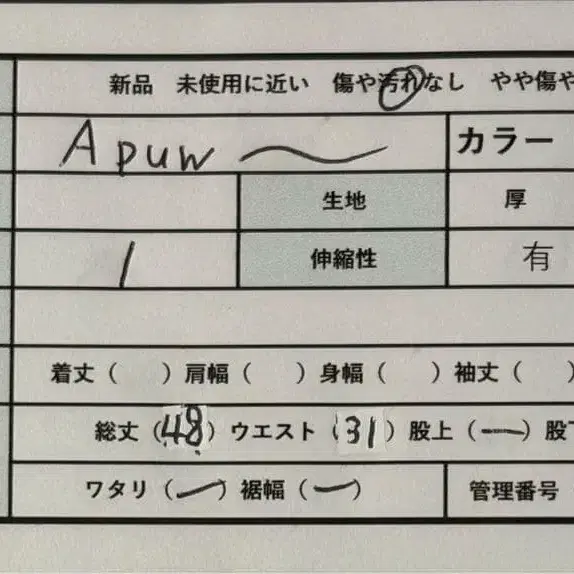 新品 未使用に近い 傷や汚れなし やや傷や
Apuw〜 カラー
生地 厚
1 伸縮性 有
着丈( )肩幅( )身幅( )袖丈( )
総丈(48)ウエスト(31)股上(ー)股下
ワタリ(ー)裾幅(ー) 管理番号